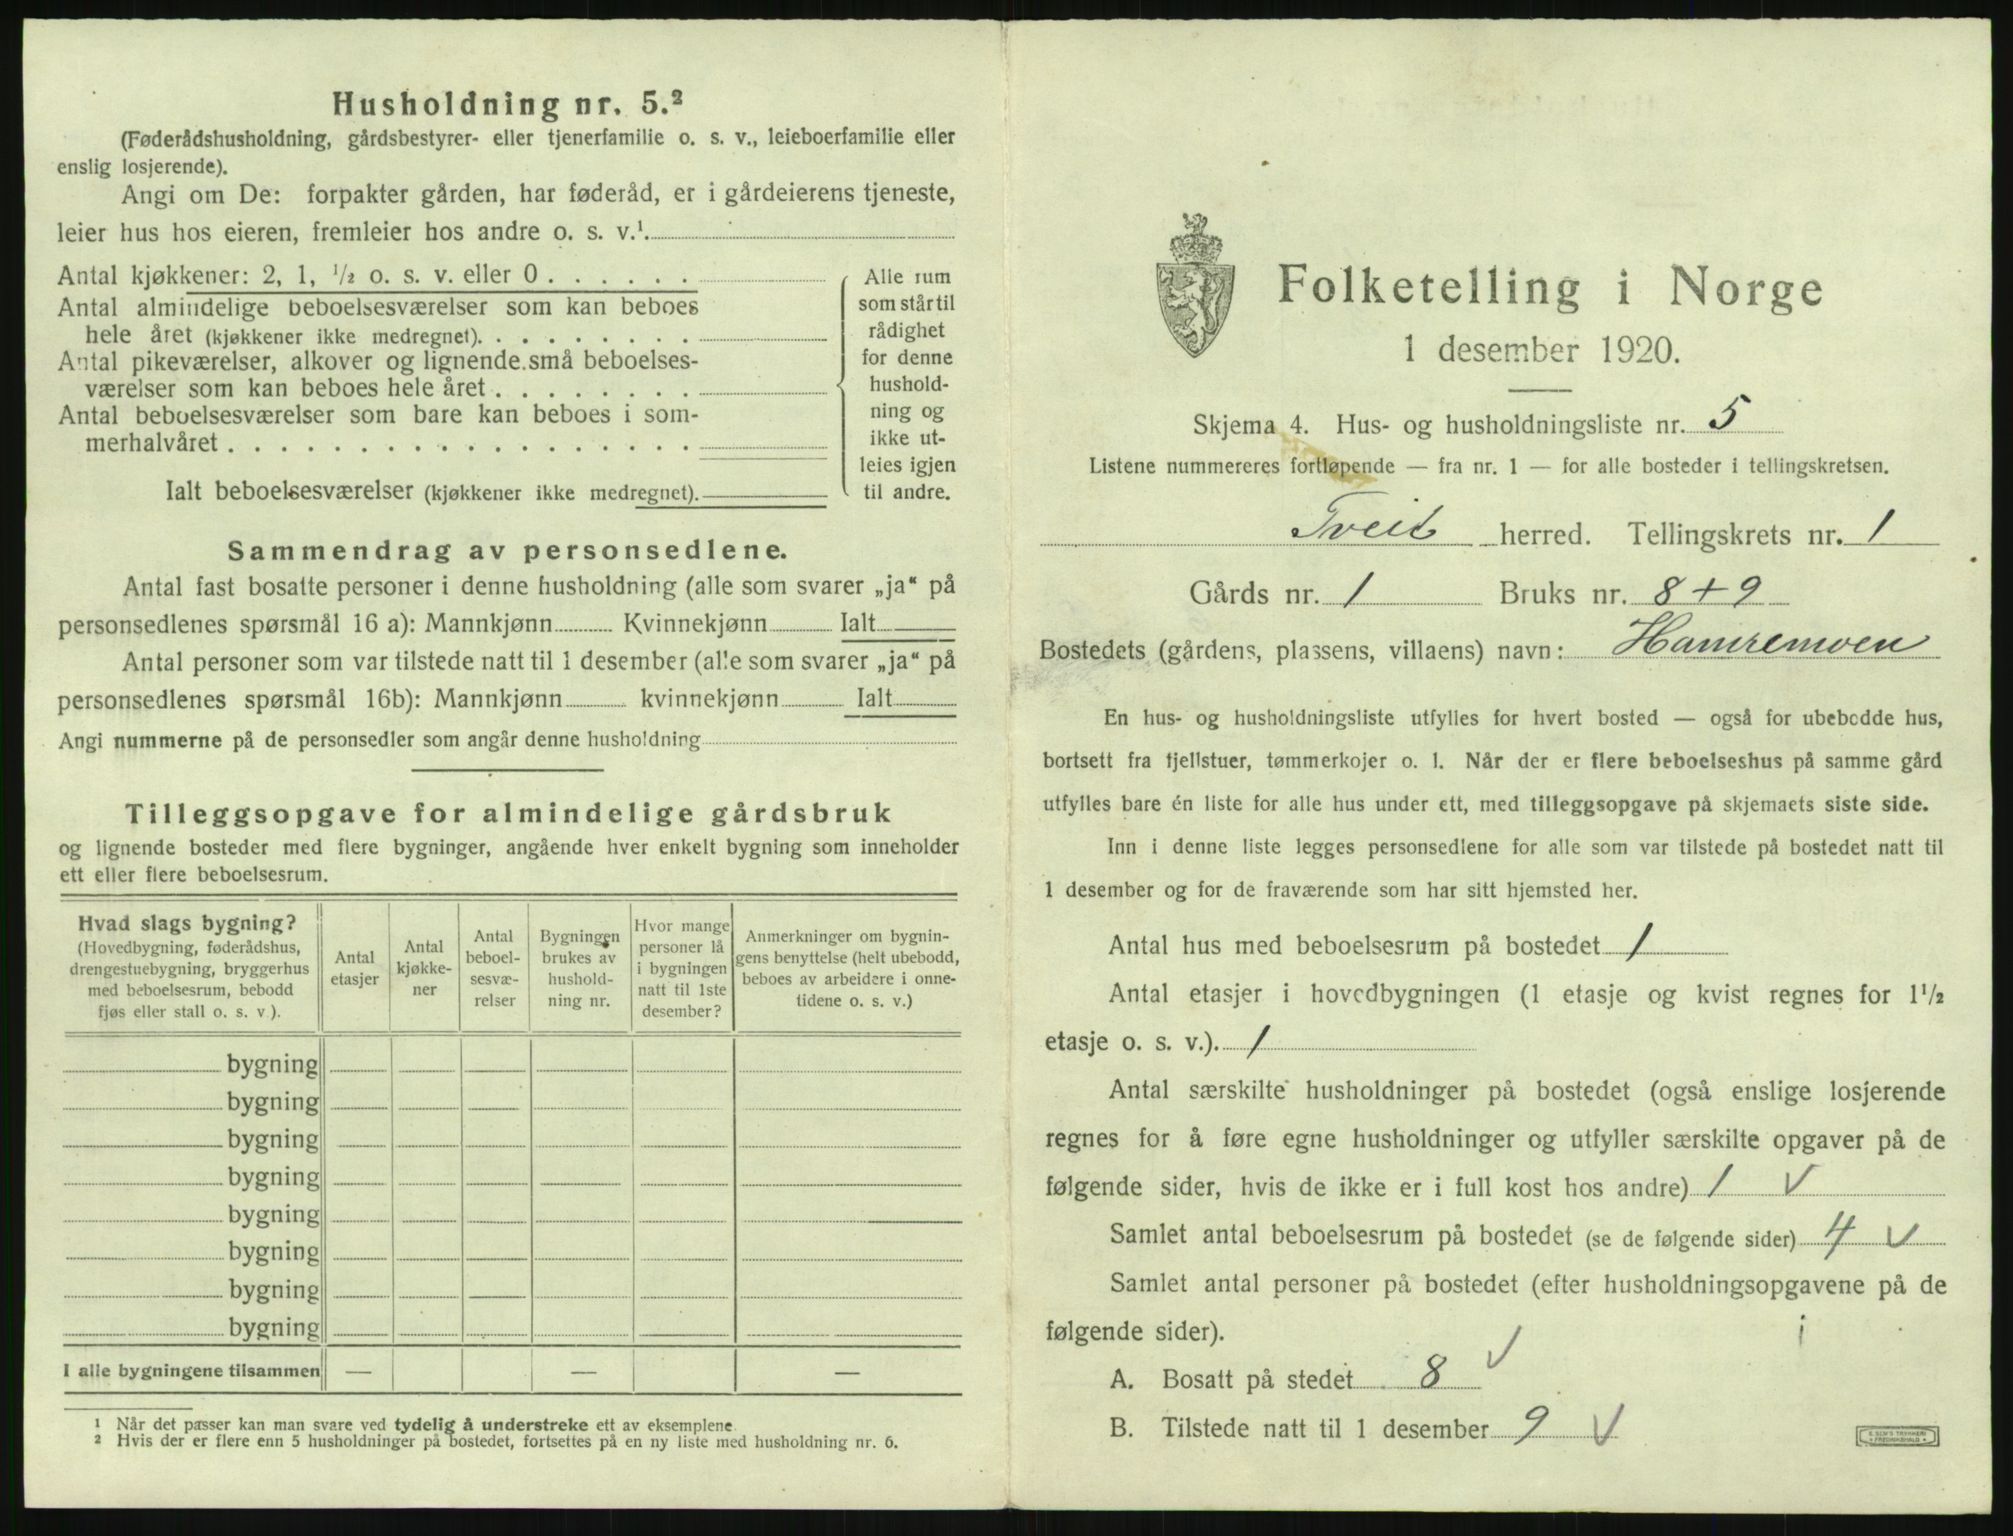 Husholdning nr. 5.²
(Føderådshusholdning, gårdsbestyrer- eller tjenerfamilie o. s. v., leieboerfamilie eller
enslig losjerende).
Angi om De: forpakter gården, har føderåd, er i gårdeierens tjeneste,
leier hus hos eieren, fremleier hos andre o. s. v.¹.
Antal kjøkkener: 2, 1, ½ o. s. v. eller 0 . . . . . .
Antal almindelige beboelsesværelser som kan beboes
hele året (kjøkkener ikke medregnet). . . . . . . . .
Antal pikeværelser, alkover og lignende små beboelses-
værelser som kan beboes hele året . . . . . . . .
Antal beboelsesværelser som bare kan beboes i som-
merhalvåret . . . . . . . . . . . . . . . . . .
Ialt beboelsesværelser (kjøkkener ikke medregnet).
Alle rum
som står til
rådighet
for denne
hushold-
ning og
ikke ut-
leies igjen
til andre.
Sammendrag av personsedlene.
Antal fast bosatte personer i denne husholdning (alle som svarer „ja“ på
personsedlenes spørsmål 16 a): Mannkjønn Kvinnekjønn Ialt
Antal personer som var tilstede natt til 1 desember (alle som svarer „ja“ på
personsedlenes spørsmål 16b): Mannkjønn kvinnekjønn Ialt
Angi nummerne på de personsedler som angår denne husholdning
Tilleggsopgave for almindelige gårdsbruk
og lignende bosteder med flere bygninger, angående hver enkelt bygning som inneholder
ett eller flere beboelsesrum.
Hvad slags bygning?
(Hovedbygning, føderådshus,
drengestuebygning, bryggerhus
med beboelsesrum, bebodd
fjøs eller stall o. s. v ).
Antal
etasjer
Antal
kjøkke-
ner
Antal
beboel-
sesvæ-
relser
Bygningen
brukes av
hushold-
ning nr.
Hvor mange
personer lå
i bygningen
natt til 1ste
desember?
Anmerkninger om bygnin-
gens benyttelse (helt ubebodd,
beboes av arbeidere i onne-
tidene o. s. v.)
bygning
bygning
bygning
bygning
bygning
bygning
bygning
bygning
I alle bygningene tilsammen — — —
¹ Når det passer kan man svare ved tydelig å understreke ett av eksemplene.
² Hvis der er flere enn 5 husholdninger på bostedet, fortsettes på en ny liste med husholdning nr. 6.
Folketelling i Norge
1 desember 1920.
Skjema 4. Hus- og husholdningsliste nr. 5
Listene nummereres fortløpende — fra nr. 1 — for alle bosteder i tellingskretsen.
Tveit herred. Tellingskrets nr. 1
Gårds nr. 1 Bruks nr. 8+9
Bostedets (gårdens, plassens, villaens) navn: Hamremoen
En hus- og husholdningsliste utfylles for hvert bosted — også for ubebodde hus,
bortsett fra fjellstuer, tømmerkojer o. l. Når der er flere beboelseshus på samme gård
utfylles bare én liste for alle hus under ett, med tilleggsopgave på skjemaets siste side.
Inn i denne liste legges personsedlene for alle som var tilstede på bostedet natt til
1 desember og for de fraværende som har sitt hjemsted her.
Antal hus med beboelsesrum på bostedet 1
Antal etasjer i hovedbygningen (1 etasje og kvist regnes for 1½
etasje o. s. v.). 1
Antal særskilte husholdninger på bostedet (også enslige losjerende
regnes for å føre egne husholdninger og utfyller særskilte opgaver på de
følgende sider, hvis de ikke er i full kost hos andre) 1 ✓
Samlet antal beboelsesrum på bostedet (se de følgende sider) 4 ✓
Samlet antal personer på bostedet (efter husholdningsopgavene på de
følgende sider).
A. Bosatt på stedet 8 ✓
B. Tilstede natt til 1 desember 9 ✓
E. SEM'S TRYKKERI
FREDRIKSHALD